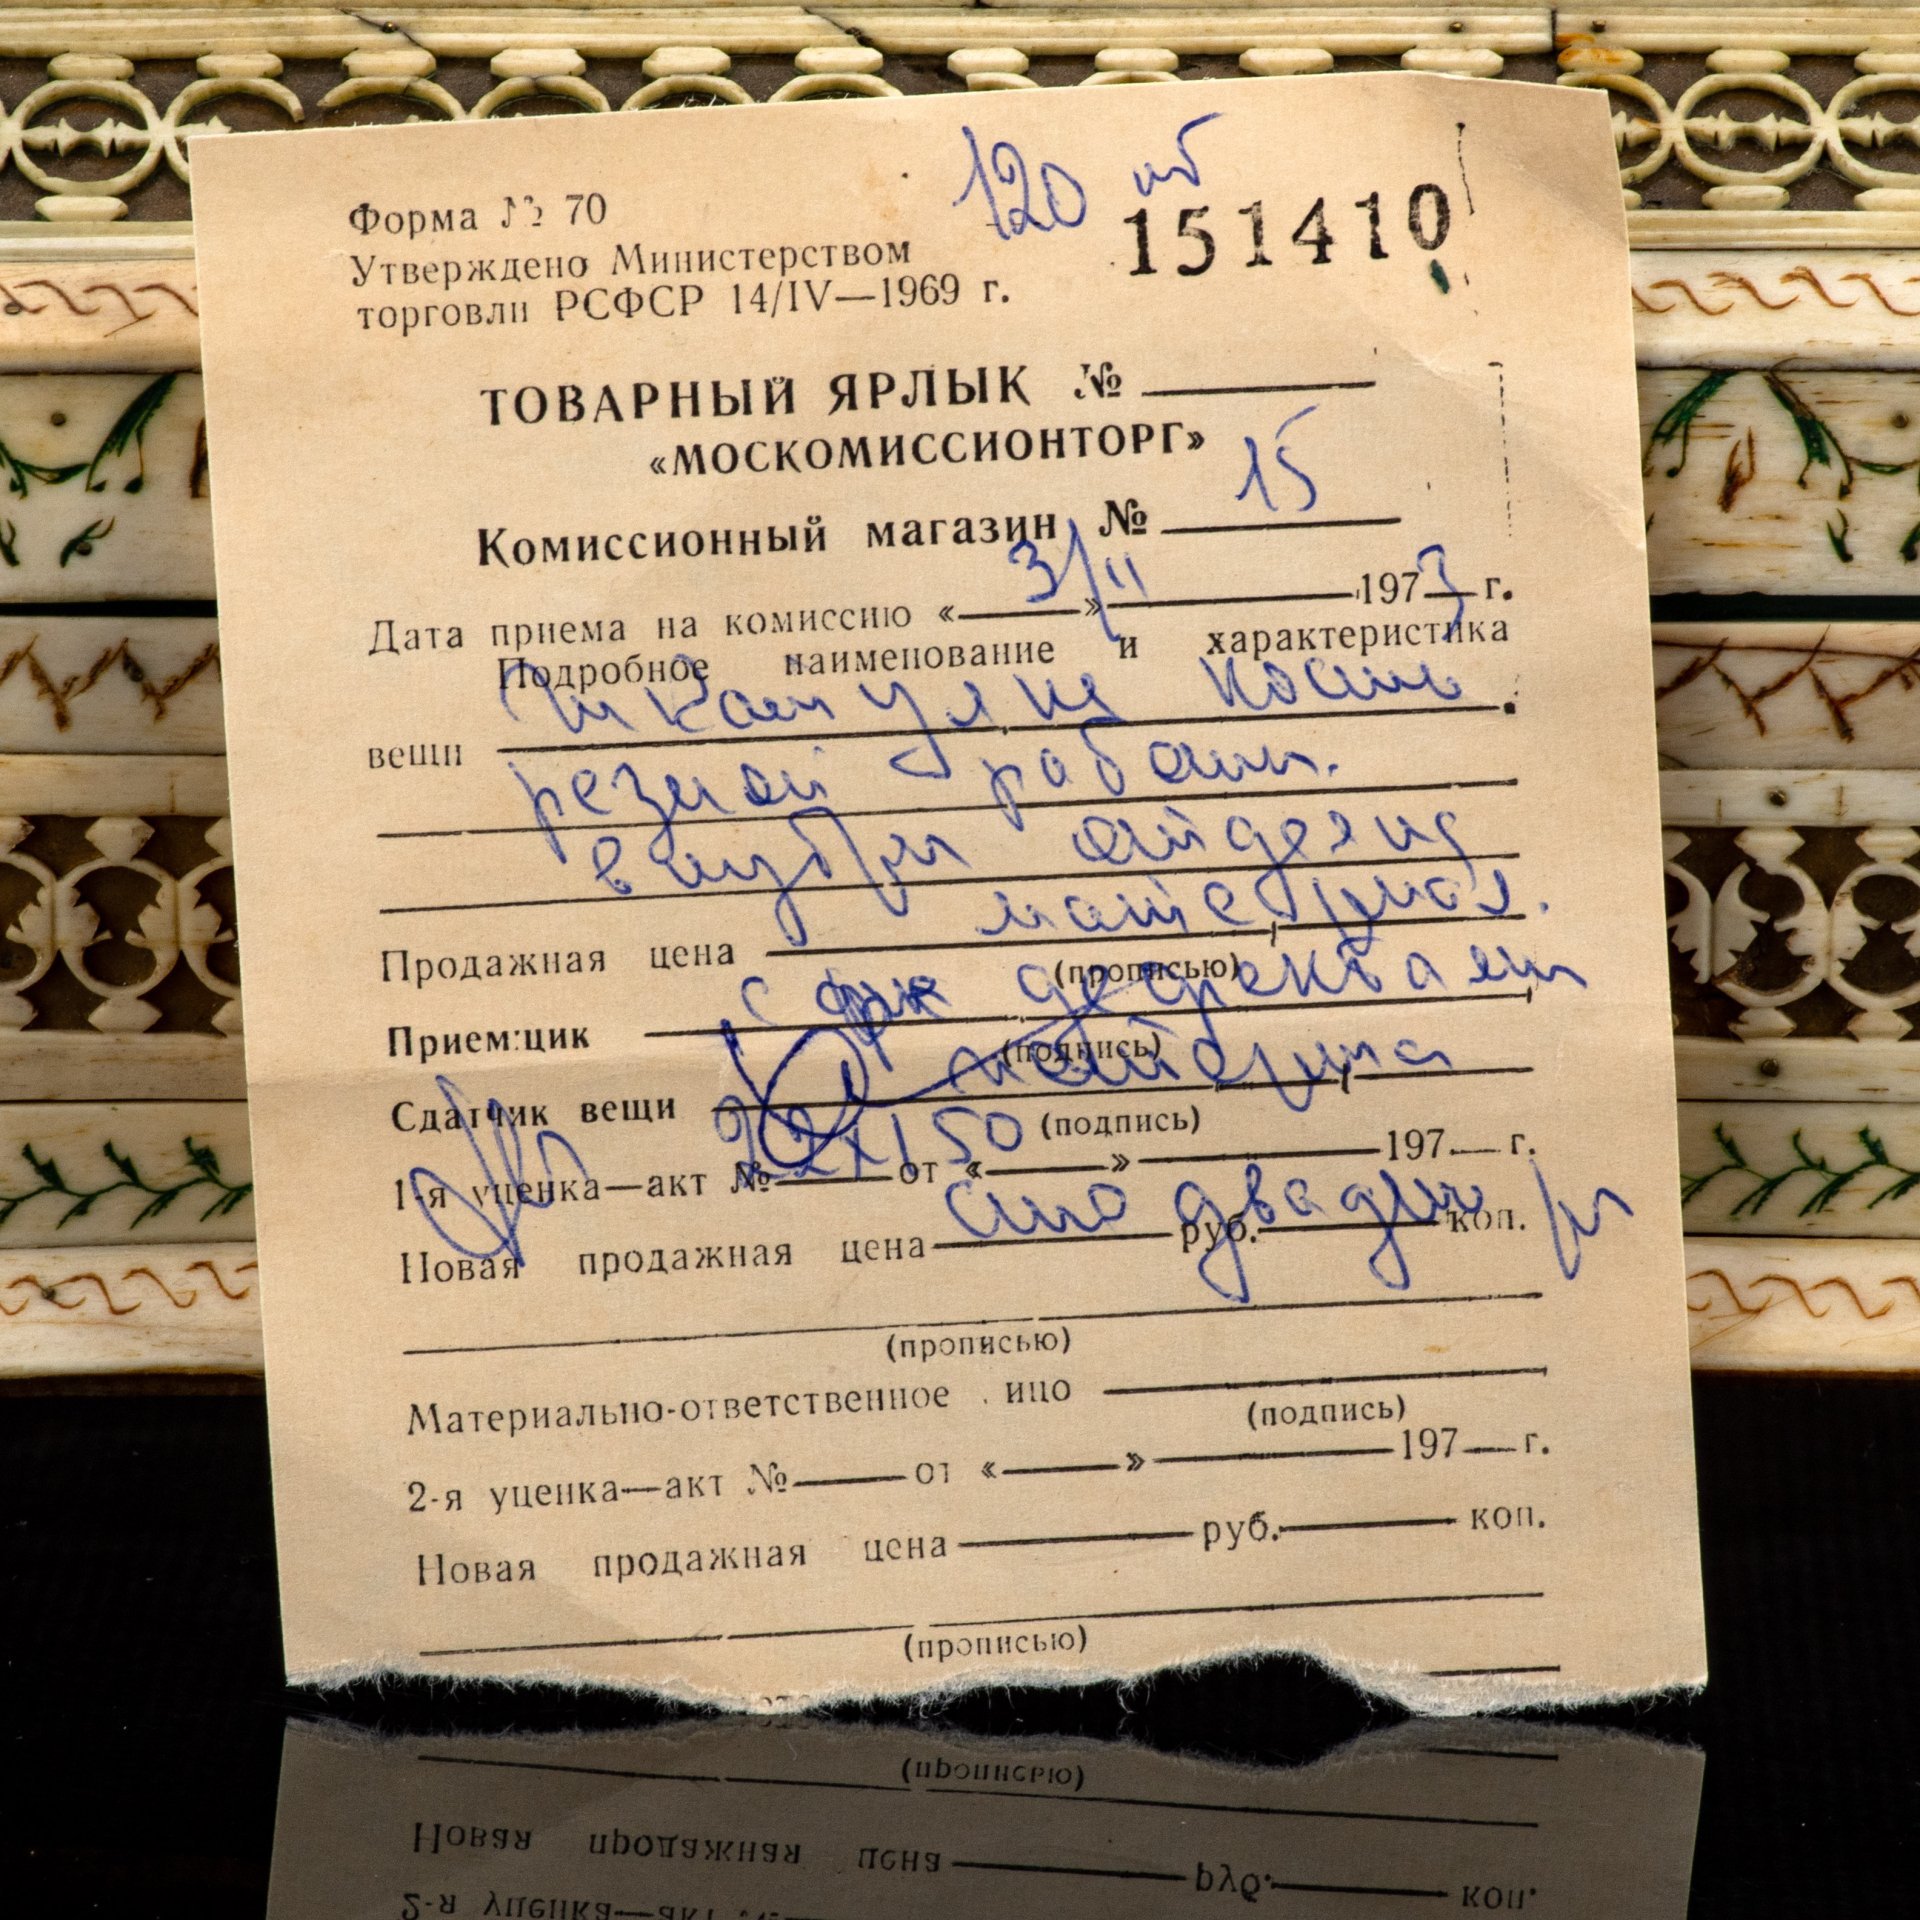 120 
151410
Форма № 70
Утверждено Министерством
торговли РСФСР 14/IV—1969 г.
ТОВАРНЫЙ ЯРЛЫК №
«МОСКОМИССИОНТОРГ»
Комиссионный магазин № 15
Дата приема на комиссию «3» / II 1973 г.
Подробное наименование и характеристика
вещи шкатулка кость
резной работы.
внутри отделка
материал.
Продажная цена
(прописью)
с дефектами
Приемщик
(подпись)
материала
Сдатчик вещи
(подпись)
22х150
1-я уценка—акт № от « » 197 г.
сто двадцать р
Новая продажная цена руб. коп.
(прописью)
Материально-ответственное лицо
(подпись)
2-я уценка—акт № от « » 197 г.
Новая продажная цена руб. коп.
(прописью)